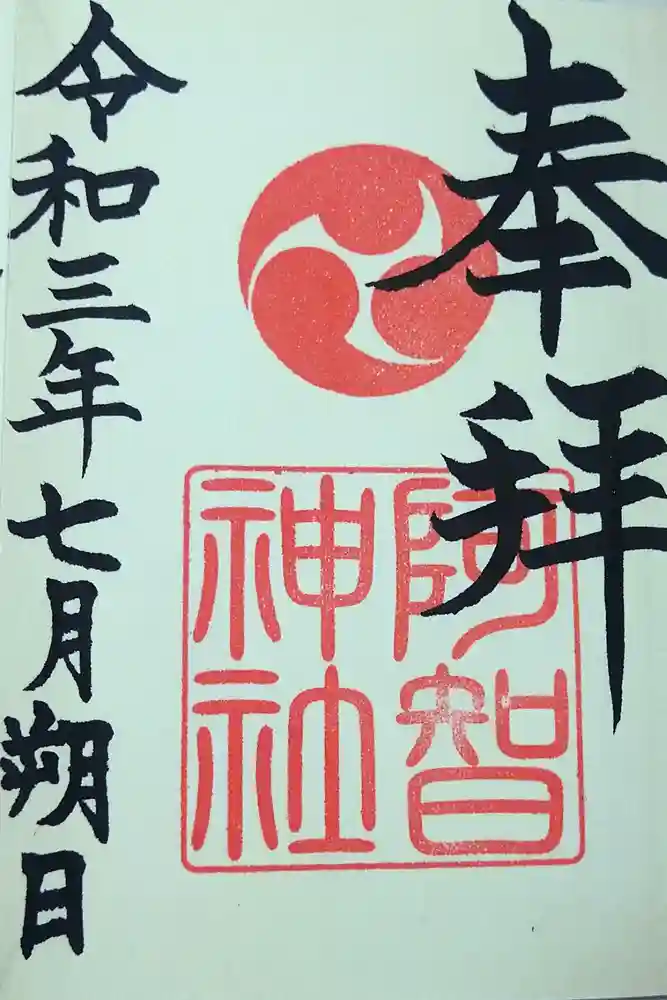 奉拝
阿智
神社
令和三年七月朔日